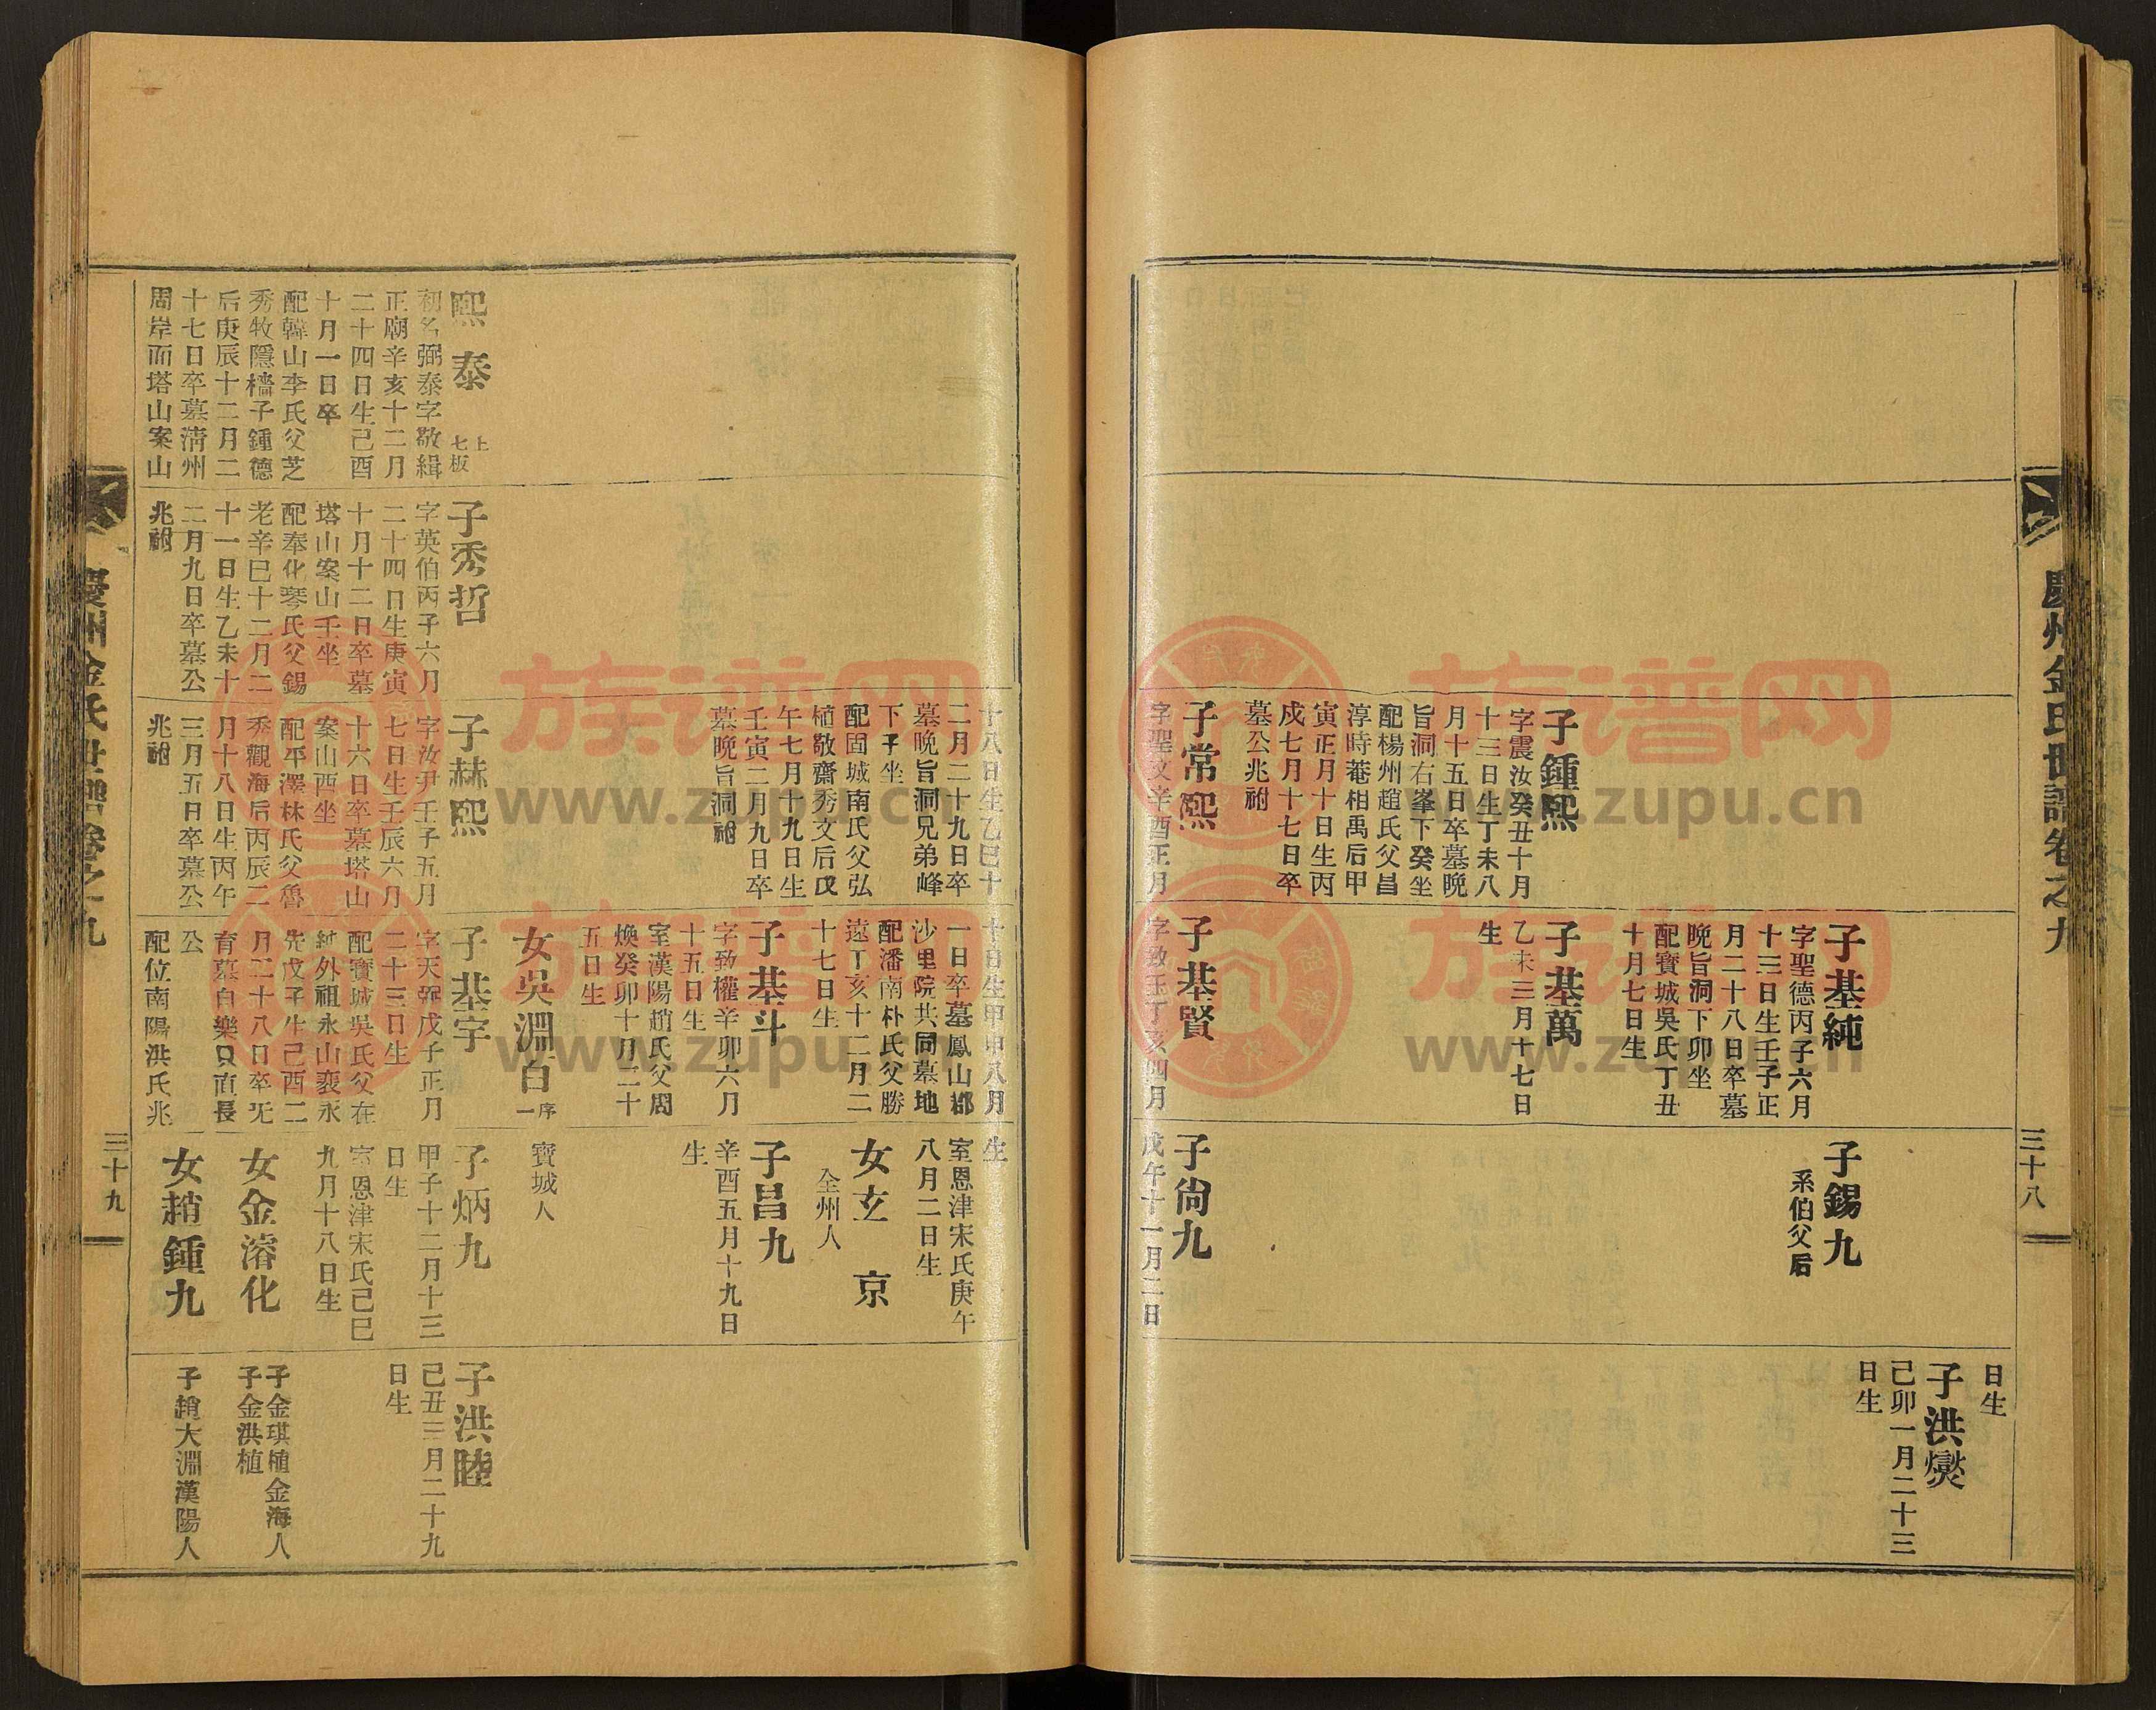 慶州金氏世譜卷之九
三十八
子鍾熙
字震汝癸丑十月
十三日生丁未八
月十五日卒墓晩
旨洞右峯下癸坐
配楊州趙氏父昌
淳時菴相禹后甲
寅正月十日生丙
戍七月十七日卒
墓公兆祔
子常熙
字聖汶辛酉正月
子基純
字聖德丙子六月
十三日生壬子正
月二十八日卒墓
晩旨洞下卯坐
配寶城吳氏丁丑
十月七日生
子基萬
乙未三月十七日
生
子基賢
字致玉丁亥四月
子錫九
系伯父后
子尙九
戊午十一月二日
日生
子洪爕
己卯一月二十三
日生
熙泰
上
七板
初名弼泰字敬緝
正廟辛亥十二月
二十四日生己酉
十月一日卒
配韓山李氏父芝
秀牧隱檣子鍾德
后庚辰十二月二
十七日卒墓淸州
周岸面塔山案山
子秀哲
字英伯丙子六月
二十四日生庚寅
十月十二日卒墓
塔山案山壬坐
配奉化琴氏父錫
老辛巳十二月二
十一日生乙未十
二月九日卒墓公
兆祔
十八日生乙巳十
二月二十九日卒
墓晩旨洞兄弟峰
下子坐
配固城南氏父弘
植敬齋秀文后戊
午七月十九日生
壬寅二月九日卒
墓晩旨洞祔
子赫熙
字汝尹壬子五月
七日生壬辰六月
十六日卒墓塔山
案山酉坐
配平澤林氏父魯
秀觀海后丙辰二
月十八日生丙午
三月五日卒墓公
兆祔
十日生甲申八月
一日卒墓鳳山郡
沙里院共同墓地
配潘南朴氏父勝
遠丁亥十二月二
十七日生
子基斗
字致權辛卯六月
十五日生
室漢陽趙氏父周
煥癸卯十月二十
五日生
女吳淵白
序
一
子基宇
字天弼戊子正月
二十三日生
配寶城吳氏父在
外祖永山裵永
先戊子生己酉二
月二十八日卒旡
育墓白樂只直長
公
配位南陽洪氏兆
生
室恩津宋氏庚午
八月二日生
女玄京
全州人
子昌九
辛酉五月十九日
生
寶城人
子炳九
甲子十二月十三
日生
室恩津宋氏己巳
九月十八日生
女金濬化
女趙鍾九
子洪睦
己丑三月二十九
日生
子金琪植金海人
子金洪植
子趙大淵漢陽人
慶州金氏世譜卷之九
三十九
族谱网
www.zupu.cn
族谱网
www.zupu.cn
族谱网
www.zupu.cn
族谱网
www.zupu.cn